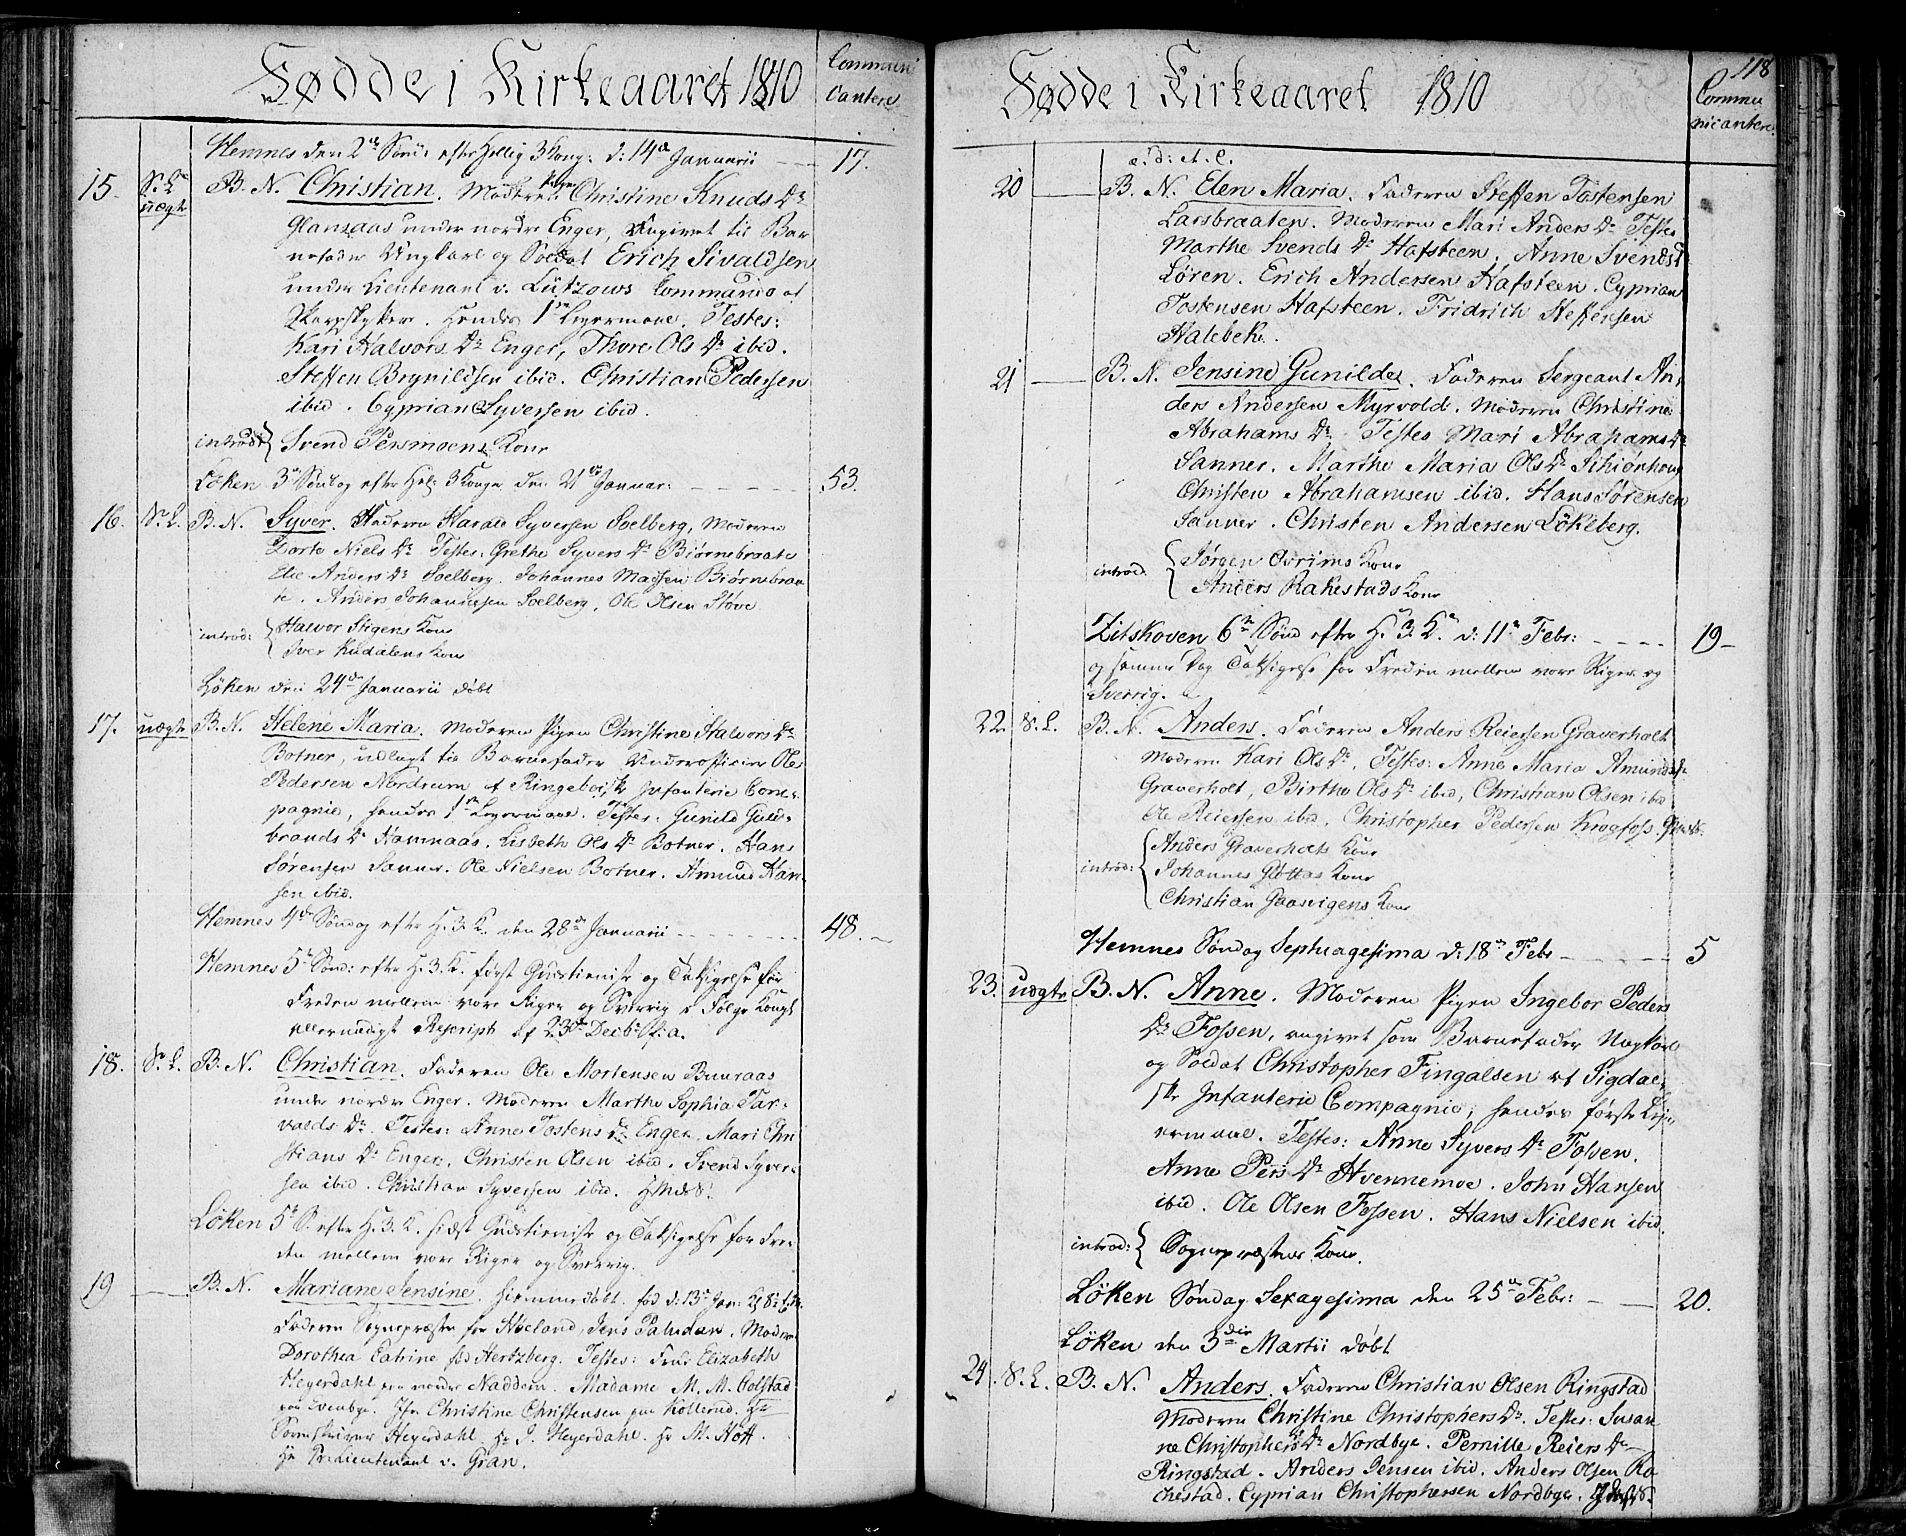 Fødde i Kirkeaaret 1810
Communi
cantere
Hemnes den 2den Sønd: efter Hellig 3 Kong: d: 14de Januarii - - - 17.
15. uægte B. N. Christian. Moderen Pigen Christine Knuds Dr
Glansaas under nordre Enger, Angivet til Bar
nefader Ungkarl og Soldat Erich Sivaldsen
under Lieutenant v. Lützows Commando af
Skarpskyttere. Hendes 1ste Leyermaal. Testes:
Kari Halvors Dr Enger, Thore Ols Dr ibid.
Steffen Brynildsen ibid. Christian Pedersen
ibid. Cyprian Syversen ibid.
introd: Svend Persmoens Kone
Löken 3die Søndag efter Hel: 3 Konger den 21de Januar: - - - 53.
16. S. L. B. N. Syver. Faderen Harald Syversen Soelberg, Moderen
Dorte Niels Dr Testes: Grethe Syvers Dr Biørnebraate
Elie Anders Dr Soelberg. Johannes Madsen Biørnebraa
te. Anders Johannesen Soelberg, Ole Olsen Støve
introd: Halvor Stigens Kone
Iver Kudalens Kone
Löken den 24de Januarii døbt
17. uægte B. N. Helene Maria. Moderen Pigen Christine Halvors Dr
Botner, udlagt til Barnefader Underofficier Ole
Pedersen Nordrum af Ringeboeske Infanterie Com-
pagnie, hendes 1ste Leyermaal. Testes: Gunild Guld-
brands Dr Hamnaas. Lisbeth Ols Dr Botner. Hans
Sørensen Sanner. Ole Nielsen Botner. Amund Han-
sen ibid.
Hemnes 4de Søndag efter H. 3 K. den 28de Januarii - - - 48.
Hemnes 5te Sønd: efter H. 3. K. først Gudstieniste og Taksigelse for
Freden mellem vore Riger og Sverrig i Følge Kongl
allernaadigst Rescript af 23de Decbr f: a.
18. S. L. B. N. Christian. Faderen Ole Mortensen Buuraas
under nordre Enger. Moderen Marthe Sophia Tar-
valds Dr. Testes: Anne Tostens Dr Enger. Mari Chri
stians Dr Enger. Christen Olsen ibid. Svend Syver-
sen ibid. Christian Syversen ibid.
Löken 5te S. efter H. 3. K. sidst Gudstieniste og Taksigelse for Fre-
den mellem vore Riger og Sverrig.
19 B. N. Mariane Jensine. hiemmedøbt. fød d: 13de Jan:
Faderen Sognepræsten for Høeland, Jens Paludan. Moderen
Dorothea Catrine fød Hertzberg. Testes: Frue Elizabeth
Heyerdahl paa nordre Naddum. Madame M. M. Colstad
paa Evenbye. Jfr Christine Christensen paa Kollerud. Hr
Sorenskriver Heyerdahl. Hr J. Heyerdahl. Hr M. Hoff.
Hr Premierlieutenant v. Gran.
Fødde i Kirkeaaret 1810
118
Commu
nicantere
e. d: A. C.
20 B. N. Elen Maria. Faderen Steffen Tostensen
Larsbraaten. Moderen Mari Anders Dr Testes
Marthe Svends Dr Hafsteen. Anne Svends Dr
Løren. Erich Andersen Hafsteen. Cyprian
Tostensen Hafsteen. Fridrich Steffensen
Halebek.
21 B. N. Jensine Gunilde. Faderen Sergeant An-
ders Andersen Myrvold. Moderen Christine
Abrahams Dr. Testes Mari Abrahams Dr
Sanner. Marthe Maria Ols Dr Schiønhoug
Christen Abrahamsen ibid. Hans Sørensen
Sanner. Christen Andersen Lökeberg.
introd. Jørgen Ovrims Kone
Anders Rakestads Kone
Zitskoven 6te Sønd efter H. 3. K. d: 11te Febr: - - - 19
og samme Dag Taksigelse for Freden mellem vore Riger og
Sverrig.
22. S. L. B. N. Anders. Faderen Anders Reiersen Graverholt
Moderen Kari Ols Dr. Testes: Anne Maria Amunds Dr
Graverholt, Birthe Ols Dr ibid, Christian Olsen ibid
Ole Reiersen ibid. Christopher Pedersen Krogfoss.
introd: Anders Graverholts Kone
Johannes Gløttas Kone
Christian Gaasvigens Kone
Hemnes Søndag Septuagesima d: 18de Febr - - - 5
23. uægte B. N. Anne. Moderen Pigen Ingebor Peders
Dr Fossen, angivet som Barnefader Ungkarl
og Soldat Christopher Fingalsen af Sigdal-
ske Infanterie Compagnie, hendes første Ley-
ermaal. Testes: Anne Syvers Dr Fossen.
Anne Pers Dr Hvennemoe. John Hansen
ibid. Ole Olsen Fossen. Hans Nielsen ibid.
introd: Sognepræstens Kone.
Löken Søndag Sexagesima den 25de Febr: - - 20.
Löken den 3die Martii døbt
24. S. L. B. N. Anders. Faderen Christian Olsen Ringstad
Moderen Christine Christophers Dr. Testes: Susan
ne Christophers Dr Nordbye. Pernille Reiers Dr
Ringstad. Anders Jensen ibid. Anders Olsen Ra
chestad. Cyprian Christophersen Nordbye.